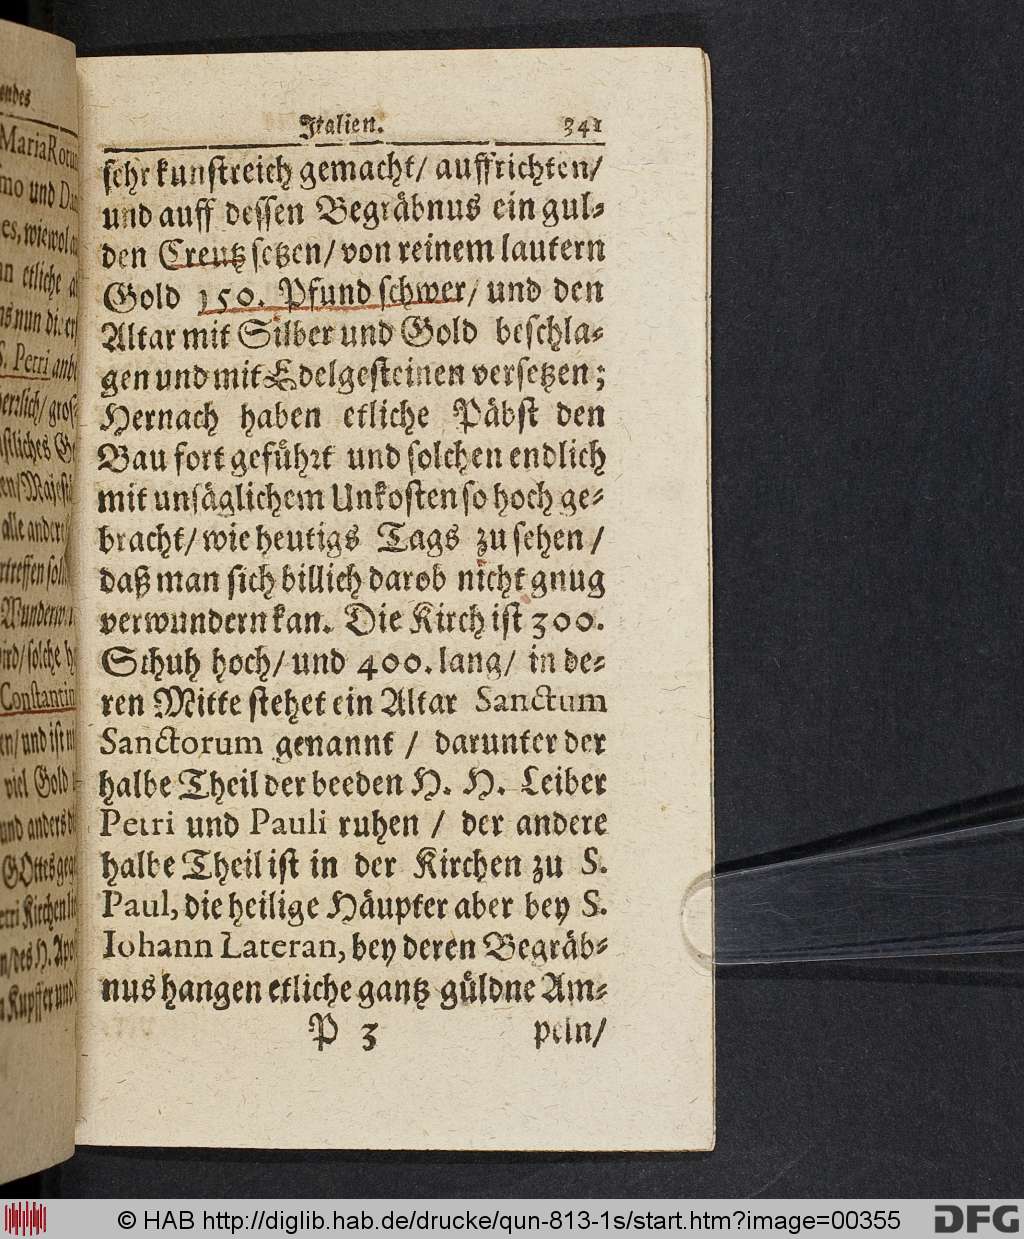 Italien. 341
sehr kunstreich gemacht/ auffrichten/
und auff dessen Begräbnus ein gul-
den Creutz setzen/ von reinem lautern
Gold 150. Pfund schwer/ und den
Altar mit Silber und Gold beschla-
gen und mit Edelgesteinen versetzen;
Hernach haben etliche Päbst den
Bau fort geführt und solchen endlich
mit unsäglichem Unkosten so hoch ge-
bracht/ wie heutigs Tags zu sehen /
daß man sich billich darob nicht gnug
verwundern kan. Die Kirch ist 300.
Schuh hoch/ und 400. lang/ in de-
ren Mitte stehet ein Altar Sanctum
Sanctorum genannt / darunter der
halbe Theil der beeden H. H. Leiber
Petri und Pauli ruhen / der andere
halbe Theil ist in der Kirchen zu S.
Paul, die heilige Häupter aber bey S.
Iohann Lateran, bey deren Begräb-
nus hangen etliche gantz güldne Am-
P 3 peln/
© HAB http://diglib.hab.de/drucke/qun-813-1s/start.htm?image=00355
DFG